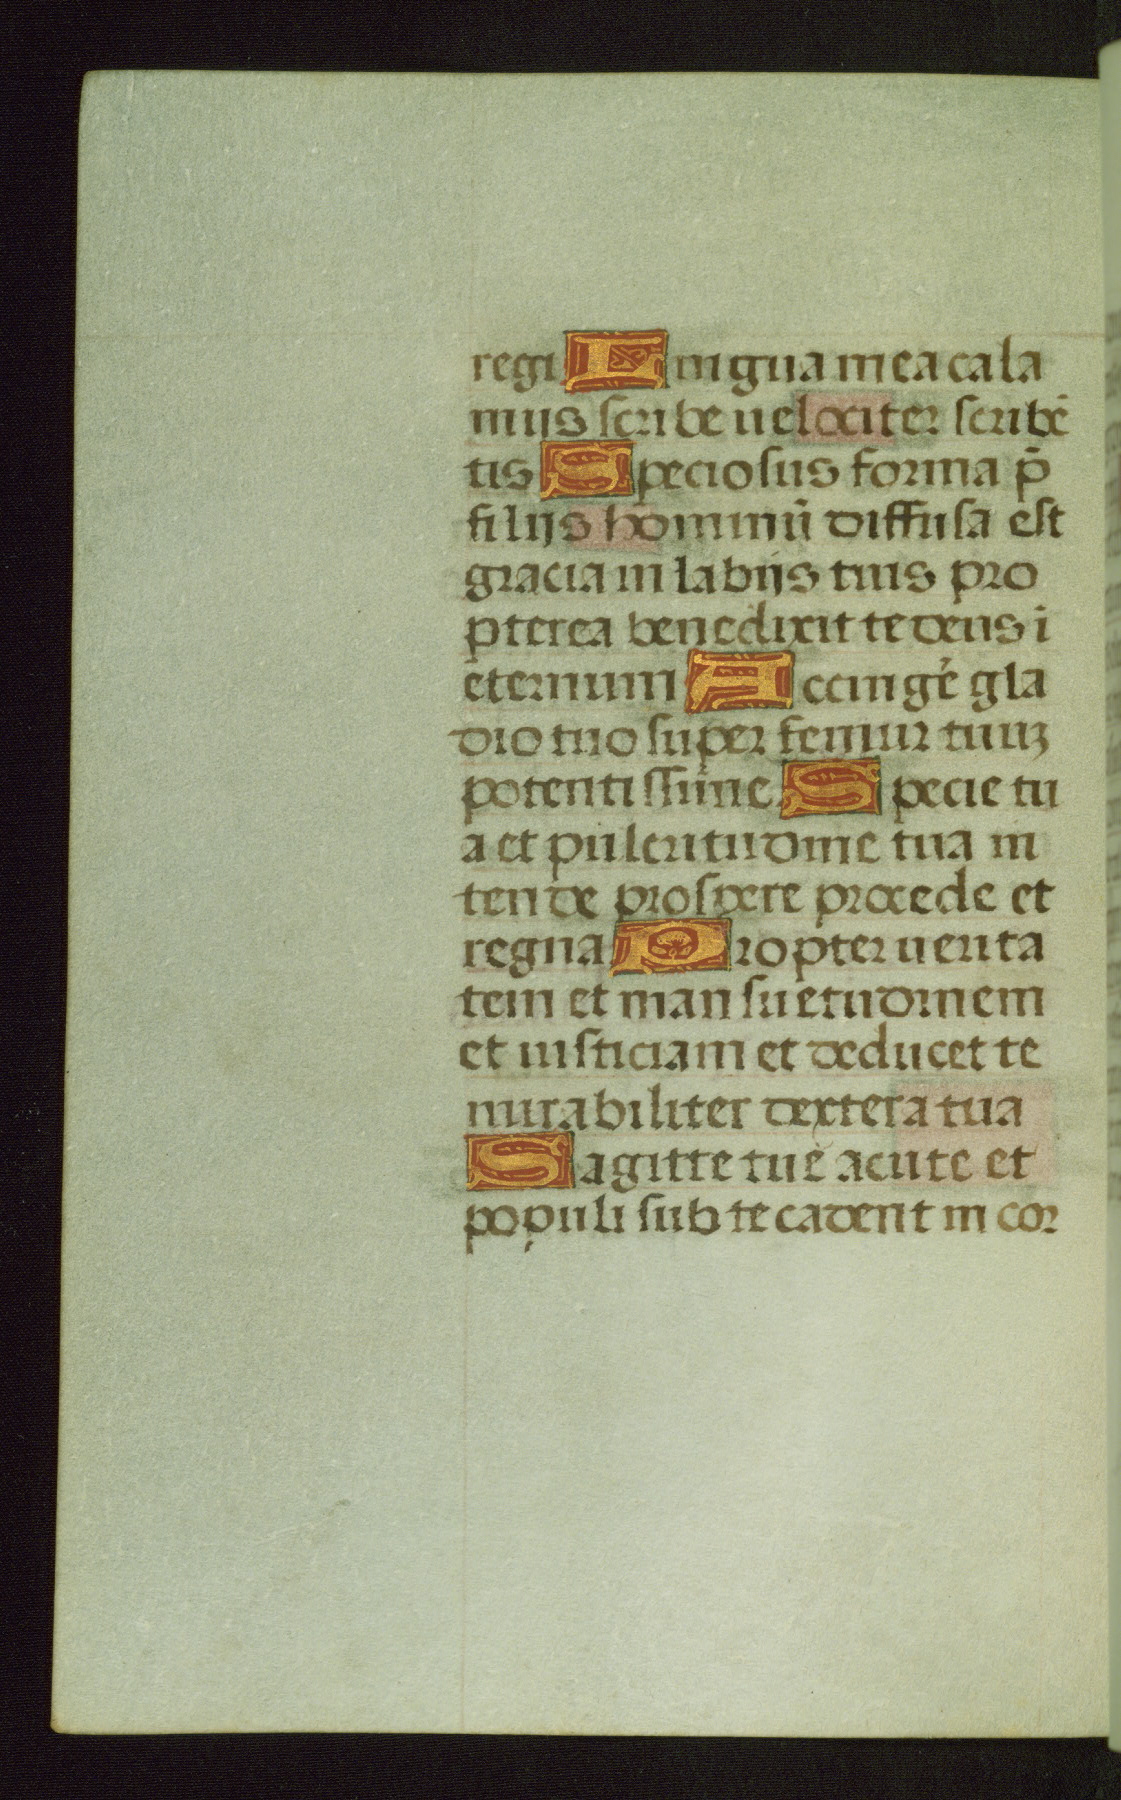 regi Lingua mea cala
mus scribe velociter scribē
tis Speciosus forma p̄
filijs hominū diffusa est
gracia in labijs tuis pro
pterea benedixit te deus ī
eternum Accingēr gla
dio tuo super femur tuuꝫ
potentissime Specie tu
a et pulcritudine tua in
tende prospere procede et
regna Propter verita
tem et mansuetudinem
et iusticiam et deducet te
mirabiliter dextera tua
Sagitte tue acute et
populi sub te cadent in cor